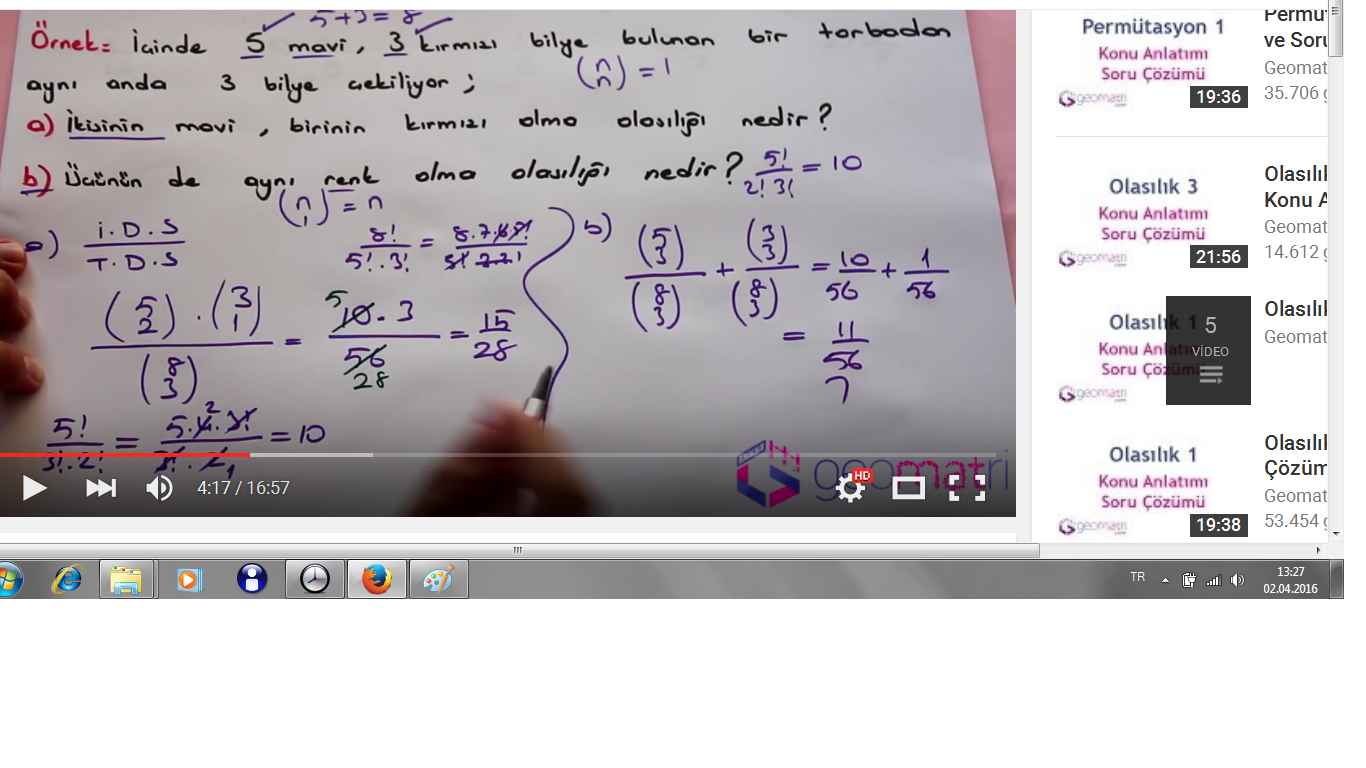 5+3=8
Örnek= İçinde 5 mavi, 3 kırmızı bilye bulunan bir torbadan
aynı anda 3 bilye çekiliyor;
(n n) = 1
a) İkisinin mavi, birinin kırmızı olma olasılığı nedir?
b) Üçünün de aynı renk olma olasılığı nedir?
5!/2! 3! = 10
(n 1) = n
a) İ.D.S / T.D.S
8!/5!.3! = 8.7.6.5!/5!.3.2.1
(5 2).(3 1)/(8 3) = 10.3/56 = 15/28
5
28
5!/3!.2! = 5.4.3!/3!.2 = 10
2
1
b) (5 3)/(8 3) + (3 3)/(8 3) = 10/56 + 1/56
= 11/56
geomatri
4:17 / 16:57
HD
Permütasyon 1
Konu Anlatımı
Soru Çözümü
geomatri
19:36
ve Soru
Geomat
35.706
Olasılık 3
Konu Anlatımı
Soru Çözümü
geomatri
21:56
Olasılık
Konu A
Geomat
14.612
Olasılık 1
Konu Anlatımı
Soru Çözümü
geomatri
5
VİDEO
Olasılık
Geomat
Olasılık 1
Konu Anlatımı
Soru Çözümü
geomatri
19:38
Olasılık
Çözüm
Geomat
53.454
TR
13:27
02.04.2016